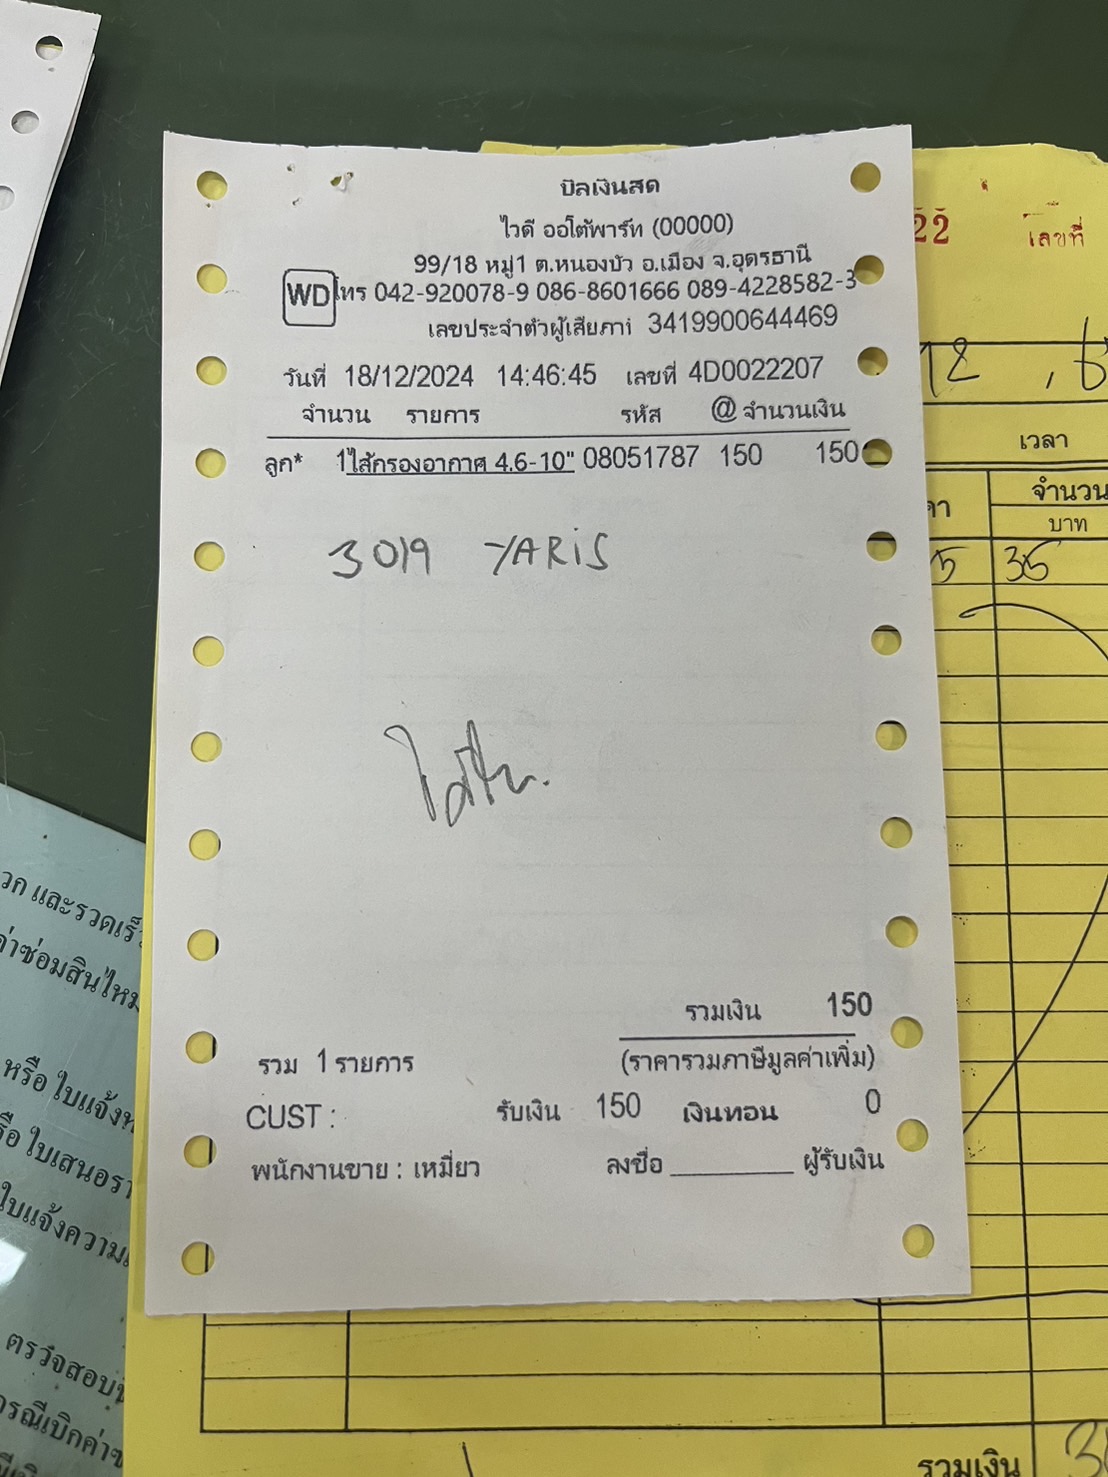 บิลเงินสด
ไวดี ออโต้พาร์ท (00000)
99/18 หมู่1 ต.หนองบัว อ.เมือง จ.อุดรธานี
WD โทร 042-920078-9 086-8601666 089-4228582-3
เลขประจำตัวผู้เสียภาษี 3419900644469
วันที่ 18/12/2024 14:46:45 เลขที่ 4D0022207
จำนวน รายการ รหัส @ จำนวนเงิน
ลูก* 1 ไส้กรองอากาศ 4.6-10" 08051787 150 150
3019 YARiS
รวมเงิน 150
รวม 1 รายการ (ราคารวมภาษีมูลค่าเพิ่ม)
CUST : รับเงิน 150 เงินทอน 0
พนักงานขาย : เหมียว ลงชื่อ ผู้รับเงิน
22 เลขที่
เวลา
จำนวน
บาท
35
รวมเงิน
และรวดเร็ว
ค่าซ่อมสินไหม
หรือ ใบแจ้ง
ใบเสนอ
ใบแจ้งความ
ตรวจสอบ